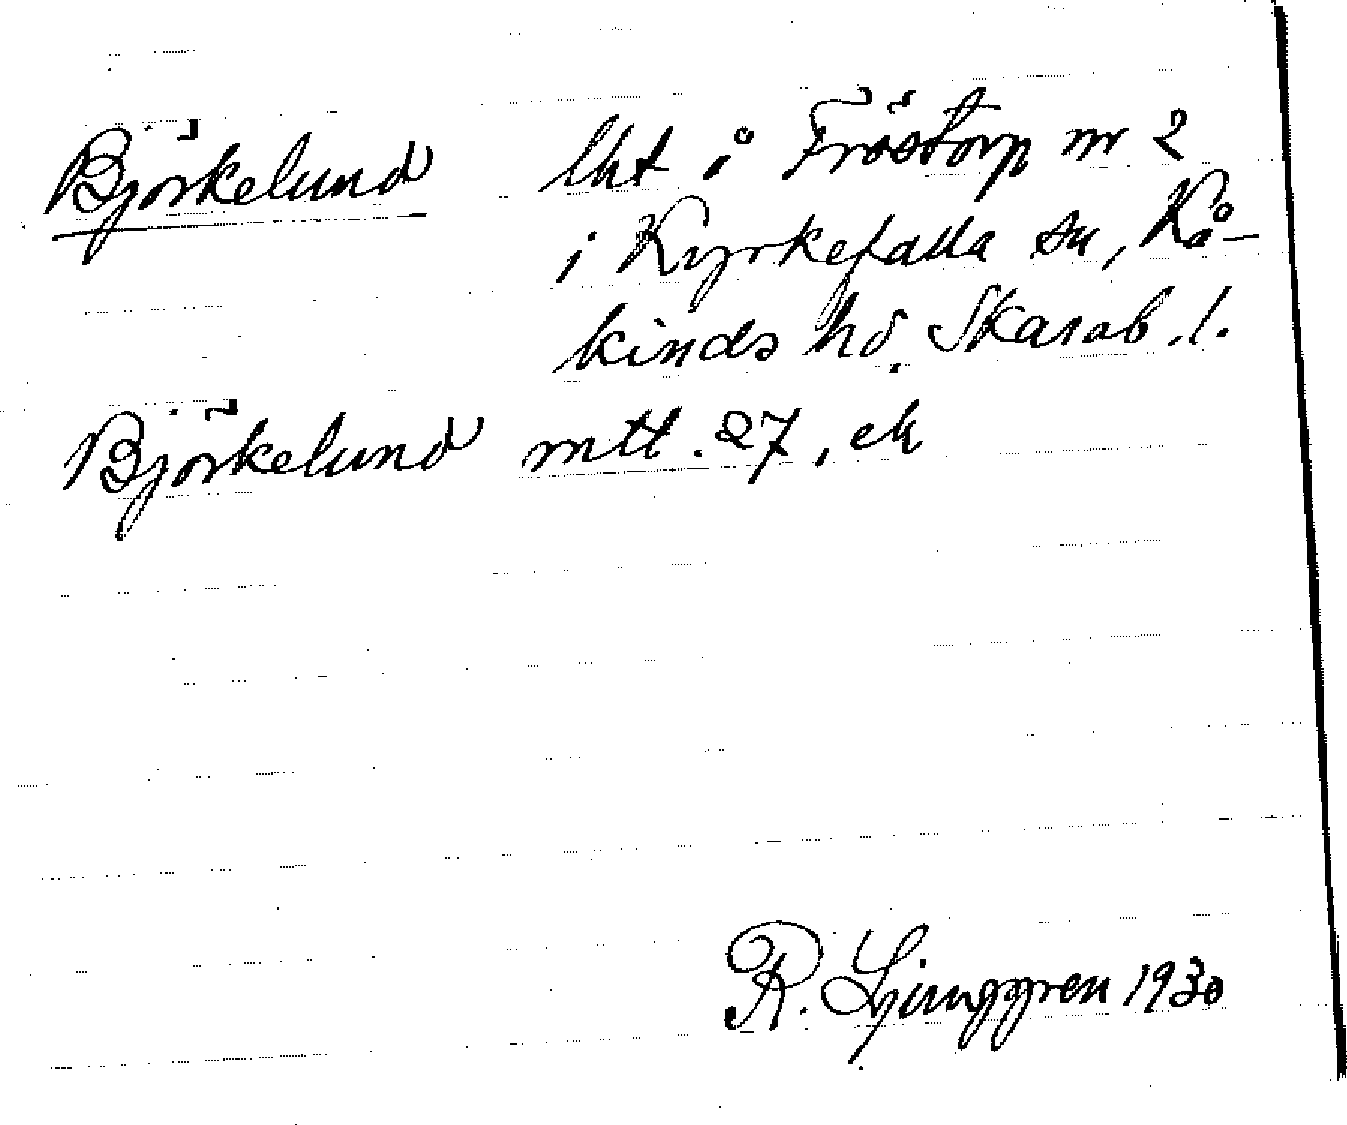 Björkelund lht å Fröstorp nr 2
i Kyrkefalla sn, Kå-
kinds hd. Skarab. l.
Björkelund mtl. 27, ek
R. Ljunggren 1930